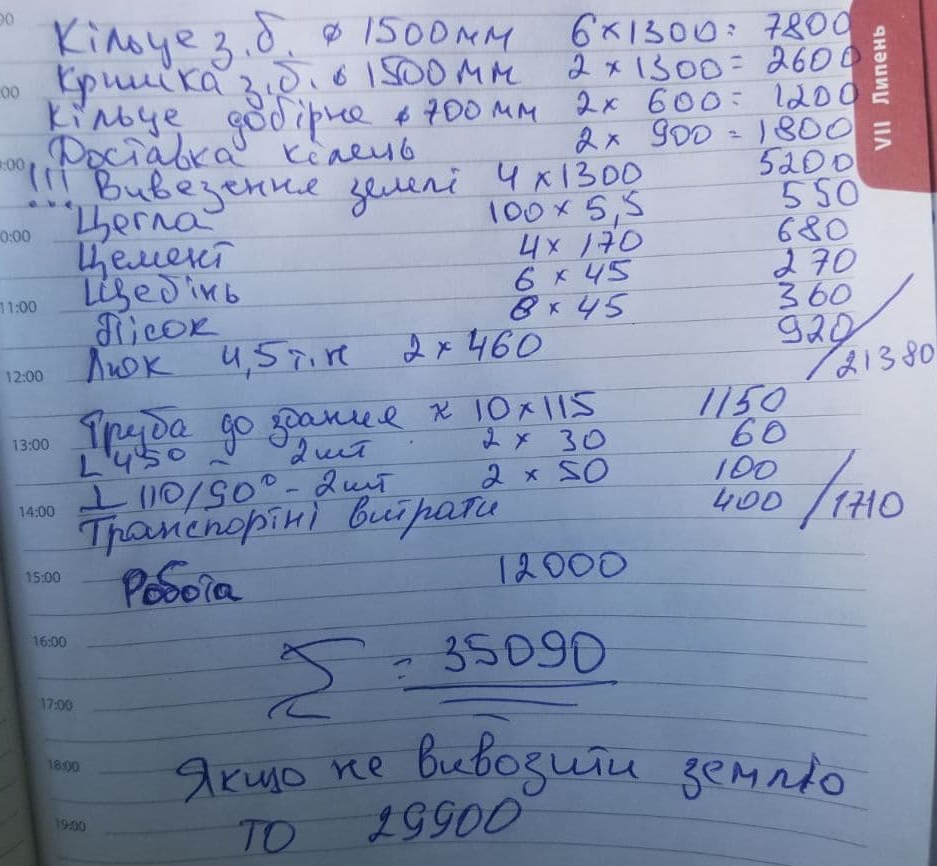 Кільце з.б. ⌀ 1500мм 6×1300= 7800
Кришка з.б. ⌀ 1500мм 2×1300= 2600
Кільце добірне ⌀ 700мм 2× 600= 1200
Доставка кілець 2× 900=1800
!!! Вивезення землі 4×1300 5200
Цегла 100×5,5 550
Цемент 4×170 680
Щебінь 6×45 270
Пісок 8×45 360
Люк 4,5т.н 2×460 920
/21380
Труба до здания × 10×115 1150
L 450 - 2шт 2×30 60
⊥ 110/90° - 2шт 2×50 100
Транспортні витрати 400 /1710
Робота 12000
Σ = 35090
Якщо не вивозити землю
ТО 29900
VII Липень
10:00
11:00
12:00
13:00
14:00
15:00
16:00
17:00
18:00
19:00